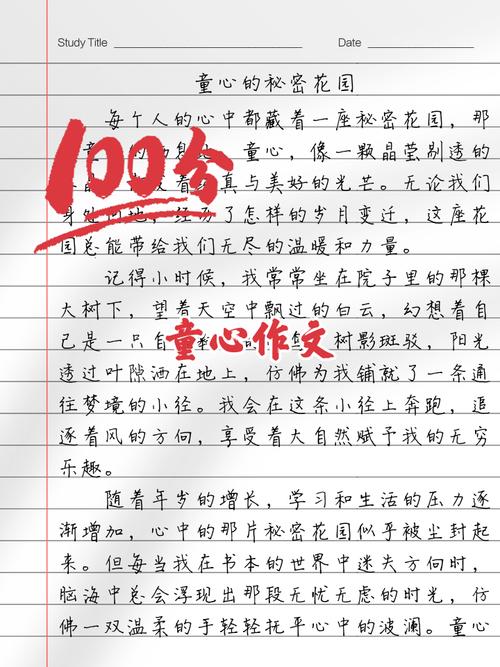 Study Title
Date
童心的秘密花园
每个人的心中都藏着一座秘密花园，那
童心，像一颗晶莹剔透的
真与美好的光芒。无论我们
身处何地，经历了怎样的岁月变迁，这座花
园总能带给我们无尽的温暖和力量。
100分
记得小时候，我常常坐在院子里的那棵
大树下，望着天空中飘过的白云，幻想着自
己是一只自
树影斑驳，阳光
童心作文
透过叶隙洒在地上，仿佛为我铺就了一条通
往梦境的小径。我会在这条小径上奔跑，追
逐着风的方向，享受着大自然赋予我的无穷
乐趣。
随着年岁的增长，学习和生活的压力逐
渐增加，心中的那片秘密花园似乎被尘封起
来。但每当我在书本的世界中迷失方向时，
脑海中总会浮现出那段无忧无虑的时光，仿
佛一双温柔的手轻轻抚平心中的波澜。童心